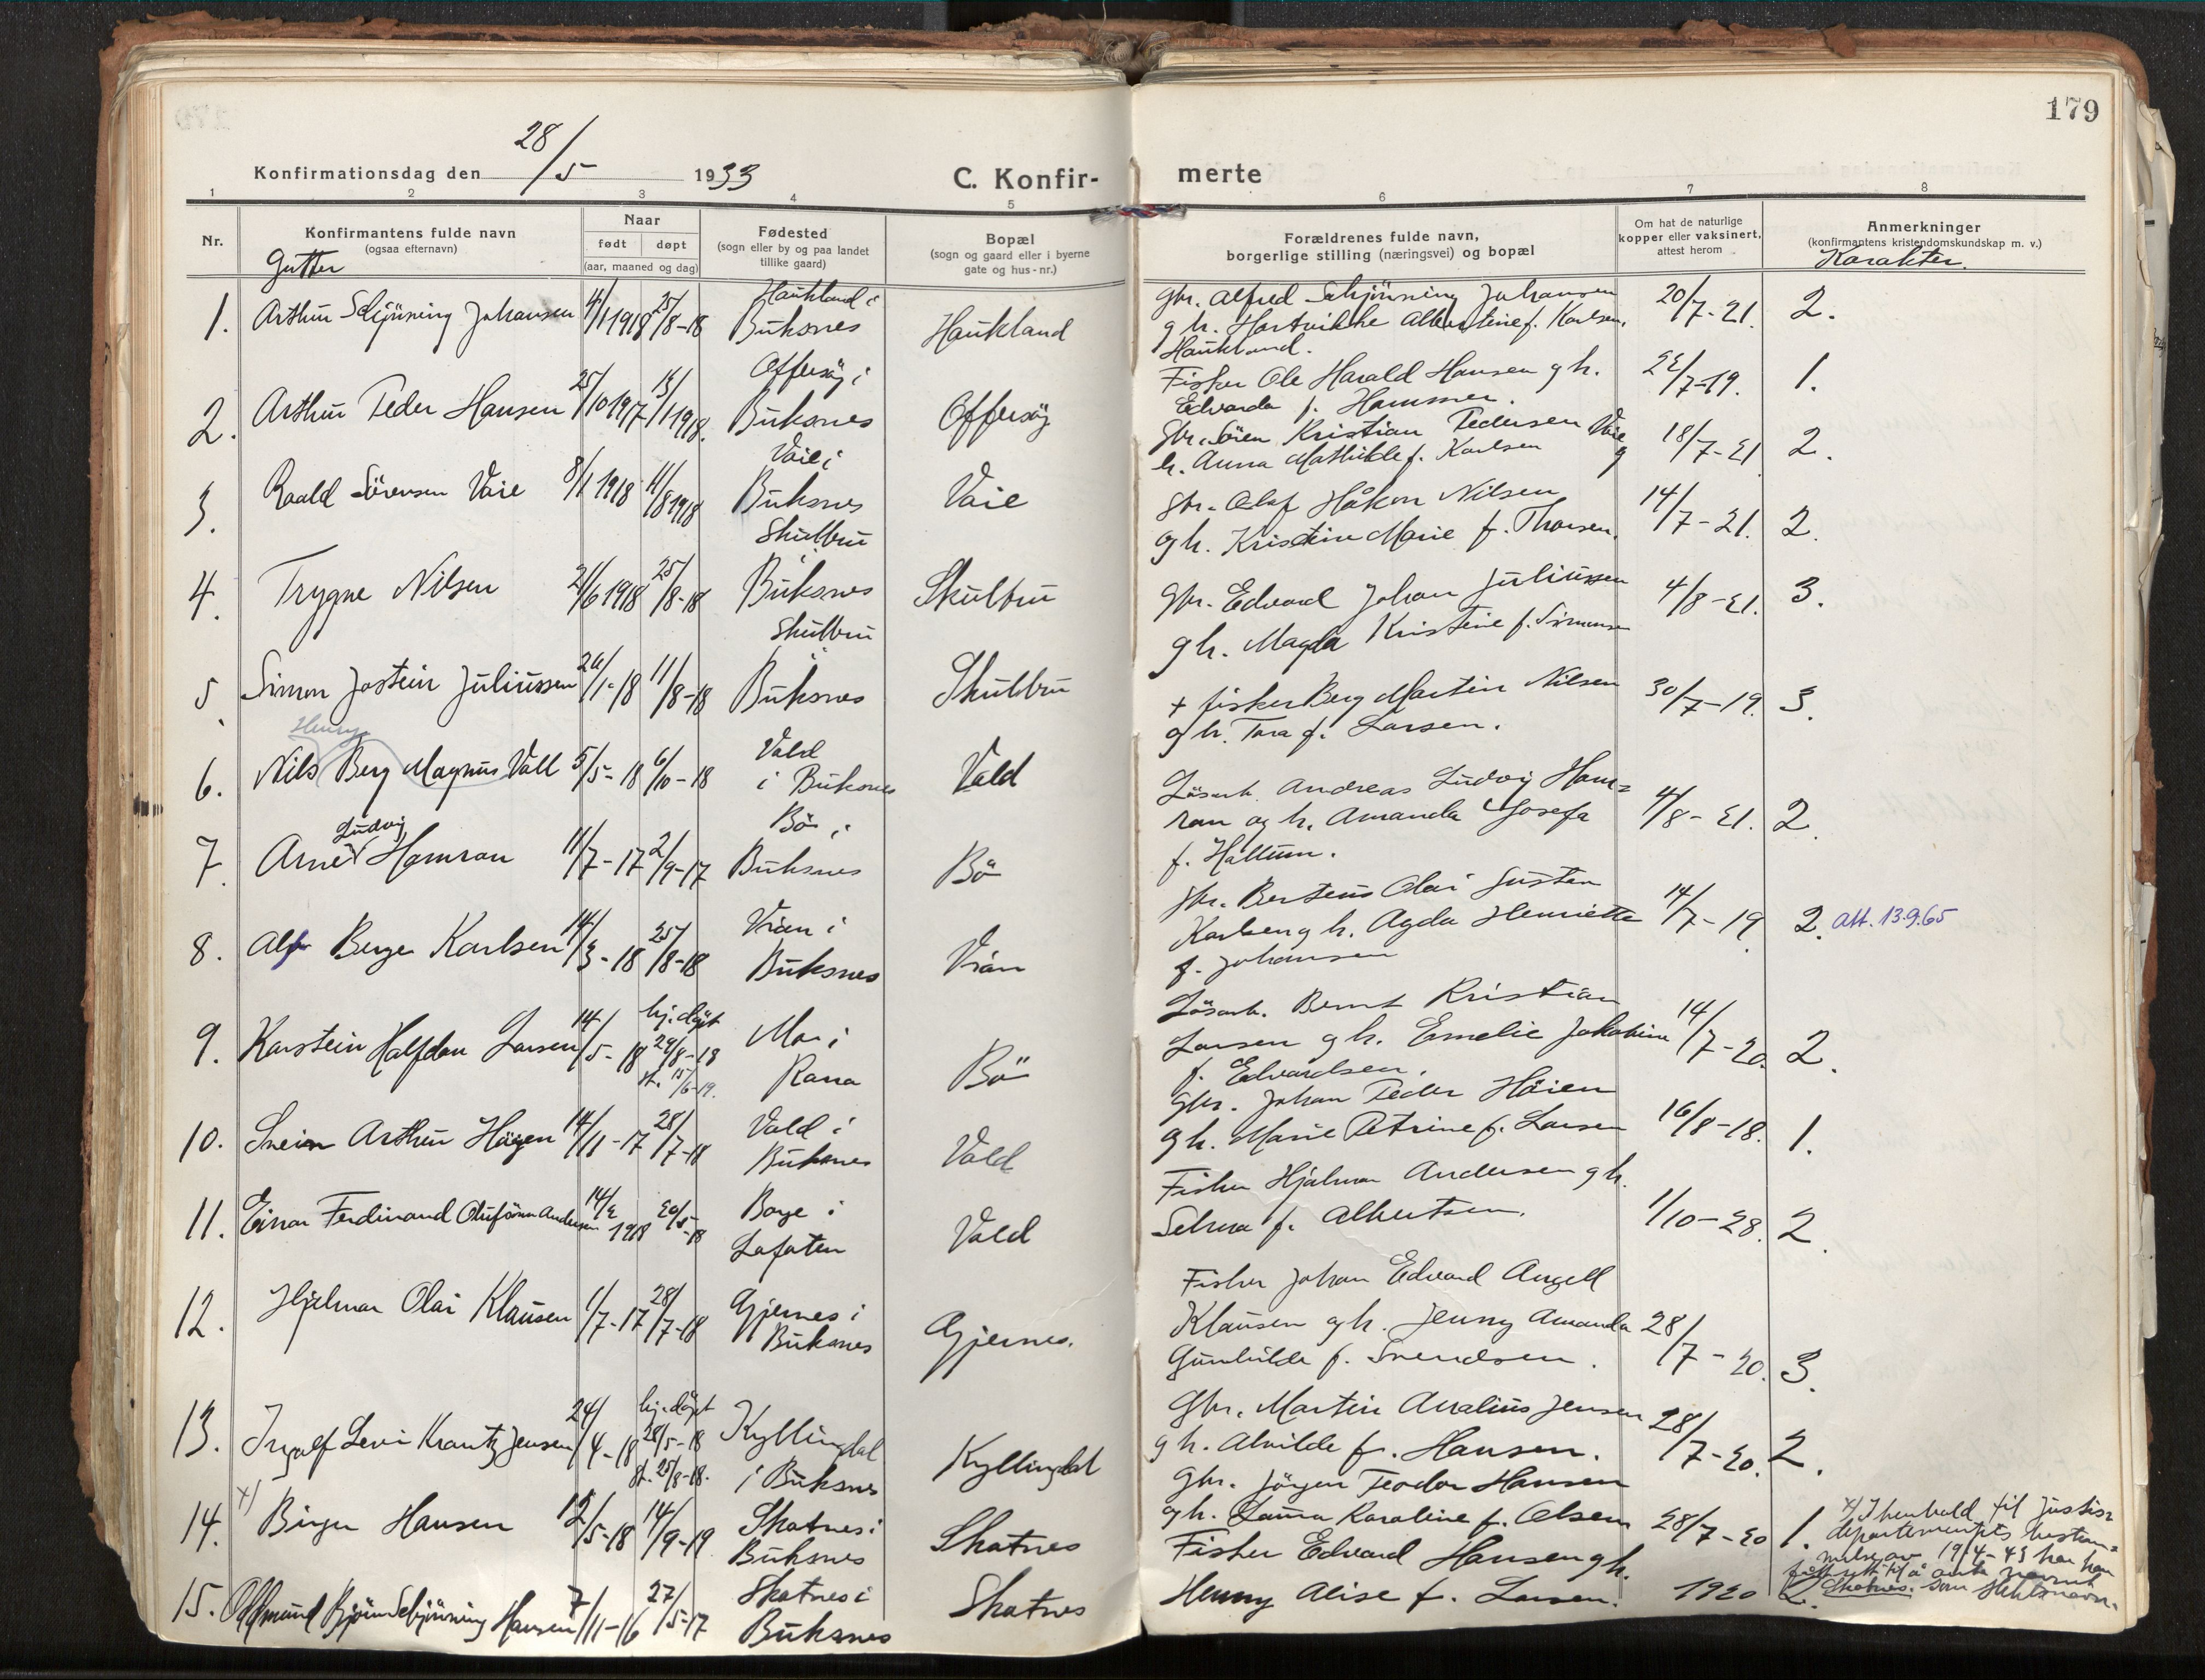 179
Konfirmationsdag den 28/5 1933
C. Konfir-
merte
1 2 3 4 5 6 7 8
Nr.
Konfirmantens fulde navn
(ogsaa efternavn)
Gutter
Naar
født døpt
(aar, maaned og dag)
Fødested
(sogn eller by og paa landet
tillike gaard)
Bopæl
(sogn og gaard eller i byerne
gate og hus-nr.)
Forældrenes fulde navn,
borgerlige stilling (næringsvei) og bopæl
Om hat de naturlige
kopper eller vaksinert,
attest herom
Anmerkninger
(konfirmantens kristendomskundskap m. v.)
Karakter.
1. Arthur Schjönning Johansen 4/1 1918 25/8-18 Haukland i
Buksnes Haukland
Gbr. Alfred Schjönning Johansen
g h. Hartvikke Albertine f. Karlsen,
Haukland.
20/7-21. 2.
2. Arthur Peder Hansen 25/10 1917 13/1 1918. Offersöy i
Buksnes Offersöy
Fisker Ole Harald Hansen g h.
Edvarda f. Hammer.
22/7-19. 1.
3. Roald Sörensen Vaie 8/1 1918 11/8 1918 Vaie i
Buksnes Vaie
Gbr. Sören Kristian Pedersen Vaie g
h. Anna Mathilde f. Karlsen
18/7-21 2.
4. Trygve Nilsen 21/6 1918 25/8-18 Skulbru
Buksnes Skulbru
Gbr. Olaf Håkon Nilsen
og h. Kristine Marie f. Thorsen.
14/7-21. 2.
5. Simon Jostein Juliussen 26/1-18 11/8-18 Skulbru
Buksnes Skulbru
Gbr. Edvard Johan Juliussen
g h. Magda Kristine f. Simonsen
4/8-21. 3.
Henry
6. Nils Berg Magnus Voll 5/5-18 6/10-18 Vold
i Buksnes Vold
+ fisker Berg Martin Nilsen
og h. Tora f. Larsen.
30/7-19. 3.
Ludvig
7. Arne Hamran 11/7-17 2/9-17 Bö i
Buksnes Bö
Lösarb. Andreas Ludvig Ham=
ran og h. Amanda Josefa
f. Hallum.
4/8-21. 2.
8. Alf Berge Karlsen 14/3-18 25/8-18 Vian i
Buksnes Vian
Gbr. Berteus Olai Gusten
Karlsen g h. Agda Henriette
f. Johansen
14/7-19. 2. Att. 13.9.65
9. Karstein Halfdan Larsen 14/5-18 hj. döpt
29/8-18
st. 15/6-19. Mo i
Rana Bö
Lösarb. Bernt Kristian
Larsen g h. Emelie Jakobine
f. Edvardsen.
14/7-20. 2.
10. Svein Arthur Högen 14/11-17 28/7-18 Vold i
Buksnes Vold
Gbr. Johan Peder Höien
g h. Marie Petrine f. Larsen
16/8-18. 1.
11. Einar Ferdinand Andersen 14/2 1918 20/5-18 Borge i
Lofoten Vold
Fisker Hjalmar Andersen g h.
Selma f. Albertsen.
1/10-28. 2.
12. Hjalmar Olai Klausen 1/7-17 28/7-18 Gjernes i
Buksnes Gjernes.
Fisker Johan Edvard Angell
Klausen g h. Jenny Amanda
Gunhilde f. Svendsen.
28/7-20. 3.
13. Ingolf Levi Krantz Jensen 24/4-18 hj. döpt
28/5-18
st. 25/8-18. Kyllingdal
i Buksnes Kyllingdal
Gbr. Martin Analius Jensen
g h. Alvilde f. Hansen.
28/7-20. 2.
14. x) Birger Hansen 12/5-18 14/9-19 Skotnes i
Buksnes Skotnes
Gbr. Jörgen Teodor Hansen
og h. Laura Karoline f. Olsen
28/7-20 1.
x) I henhold til justis=
departementets bestem=
melse av 19/4-43 har han
fått rett til å anta navnet
Skotnes som slektsnavn.
15. Oddmund Björn Schjönning Hansen 7/11-16 27/5-17 Skotnes i
Buksnes Skotnes
Fisker Edvard Hansen g h.
Henny Alise f. Larsen.
1920 2.